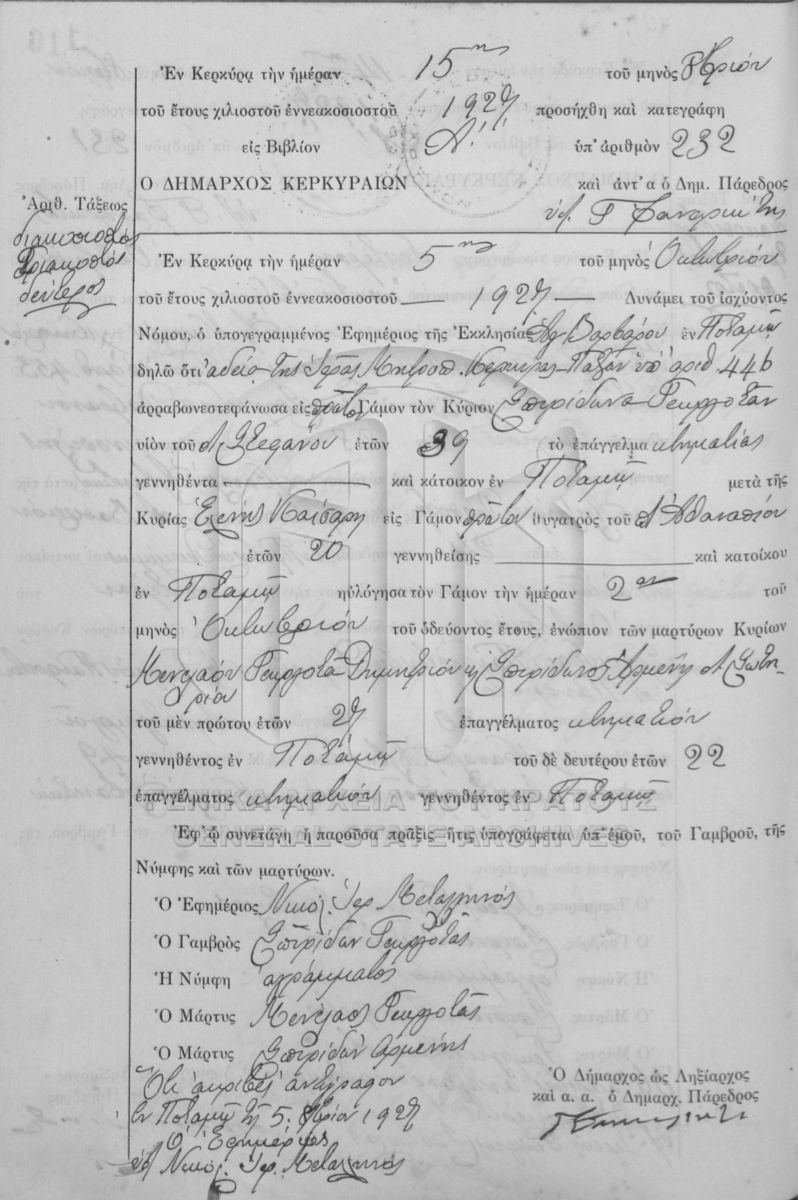 Ἐν Κερκύρᾳ τὴν ἡμέραν 15ην τοῦ μηνὸς 8βρίου
τοῦ ἔτους χιλιοστοῦ ἐννεακοσιοστοῦ 1927 προσήχθη καὶ κατεγράφη
εἰς Βιβλίον Α'. ὑπ' ἀριθμὸν 232
Ο ΔΗΜΑΡΧΟΣ ΚΕΡΚΥΡΑΙΩΝ καὶ ἀντ' α ὁ Δημ. Πάρεδρος
Ἀριθ. Τάξεως
διακοσιοστὸς
τριακοστὸς
δεύτερος
Ἐν Κερκύρᾳ τὴν ἡμέραν 5ην τοῦ μηνὸς Ὀκτωβρίου
τοῦ ἔτους χιλιοστοῦ ἐννεακοσιοστοῦ — 1927 — Δυνάμει τοῦ ἰσχύοντος
Νόμου, ὁ ὑπογεγραμμένος Ἐφημέριος τῆς Ἐκκλησίας Ἁγ Βαρβάρου ἐν Ποταμῷ
δηλῶ ὅτι ἀδείᾳ τῆς Ἱερᾶς Μητροπ. Κερκύρας Παξῶν ὑπ' ἀριθ. 446
ἀρραβωνεστεφάνωσα εἰς πρῶτον Γάμον τὸν Κύριον Σπυρίδωνα Γεωργοτᾶν
υἱὸν τοῦ Στεφάνου ἐτῶν 39 τὸ ἐπάγγελμα κτηματίας
γεννηθέντα — καὶ κάτοικον ἐν Ποταμῷ μετὰ τῆς
Κυρίας Ἑλένης Καίσαρη εἰς Γάμον πρῶτον θυγατρὸς τοῦ Ἀθανασίου
ἐτῶν 20 γεννηθείσης — καὶ κατοίκου
ἐν Ποταμῷ ηὐλόγησα τὸν Γάμον τὴν ἡμέραν 2αν τοῦ
μηνὸς Ὀκτωβρίου τοῦ ὁδεύοντος ἔτους, ἐνώπιον τῶν μαρτύρων Κυρίων
Μενελάου Γεωργοτᾶ Δημητρίου κ Σπυρίδωνος Ἀρμένη Σωτη-
ρίου
τοῦ μὲν πρώτου ἐτῶν 27 ἐπαγγέλματος κτηματίου
γεννηθέντος ἐν Ποταμῷ τοῦ δὲ δευτέρου ἐτῶν 22
ἐπαγγέλματος κτηματίου γεννηθέντος ἐν Ποταμῷ
ΓΕΝΙΚΑ ΑΡΧΕΙΑ ΤΟΥ ΚΡΑΤΟΥΣ
GENERAL STATE ARCHIVES
Ἐφ' ᾧ συνετάγη ἡ παροῦσα πρᾶξις ἥτις ὑπογράφεται ὑπ' ἐμοῦ, τοῦ Γαμβροῦ, τῆς
Νύμφης καὶ τῶν μαρτύρων.
Ὁ Ἐφημέριος Νικόλ. Ἱερ Μεταλληνός
Ὁ Γαμβρὸς Σπυρίδων Γεωργοτᾶς
Ἡ Νύμφη ἀγράμματος
Ὁ Μάρτυς Μενέλαος Γεωργοτᾶς
Ὁ Μάρτυς Σπυρίδων Ἀρμένης
Ὅτι ἀκριβὲς ἀντίγραφον
Ἐν Ποταμῷ τῇ 5. 8βρίου 1927
Ὁ Ἐφημέριος
Νικόλ. Ἱερ. Μεταλληνός
Ὁ Δήμαρχος ὡς Ληξίαρχος
καὶ α. α. ὁ Δημαρχ. Πάρεδρος